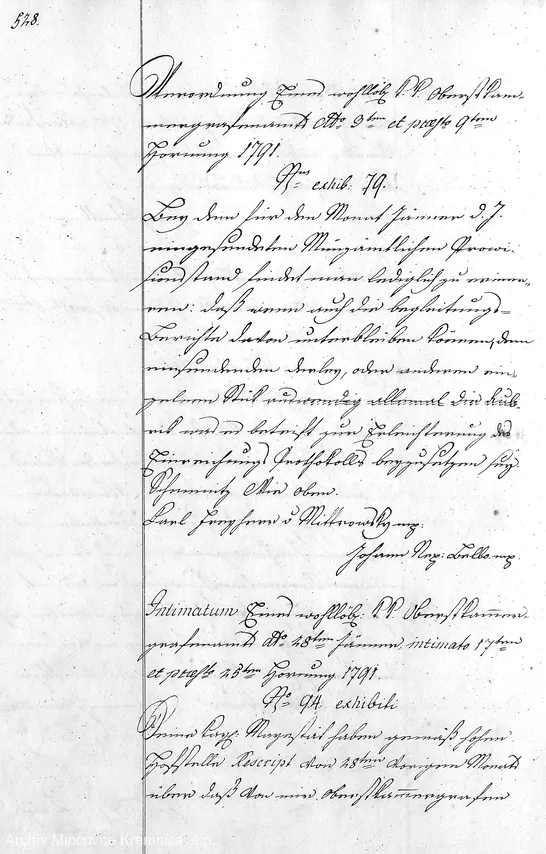 528.
Verordnung Eines wohllöb. K. K. Oberst Kam-
mergrafenamts ddto 9ten et praes. 9ten
Hornung 1791.
Nrus exhib. 79.
Bey dem für den Monat Jänner d. J.
eingesendeten Münzämtlichen Provi-
sionsstand findet man lediglich zu erinne-
ren: daß wenn auch die begleitungs-
Berichte davon unterbleiben können, dem
einsendenden derley, oder anderen ein-
zelnen Stük auswendig allemal die Rub-
rik was es betrift zur Erleichterung des
Einreichungs Prothokolls beyzusetzen sey.
Schemnitz Wie oben.
Karl Freyherr v Mittrowsky mp.
Johann Nep: Bello mp.
Intimatum Eines wohllöb. K. K. Oberstkammer-
grafenamts ddto 28ten Jänner, intimato 17ten
et praes. 25ten Hornung 1791.
Nro 94. exhibiti
Seine Kays. Mayestät haben gemäß hohen
Hofstelle Rescript von 28ten vorigen Monats
über daß von mir Oberstkammergrafen
Archív Mincovne Kremnica, š.p.